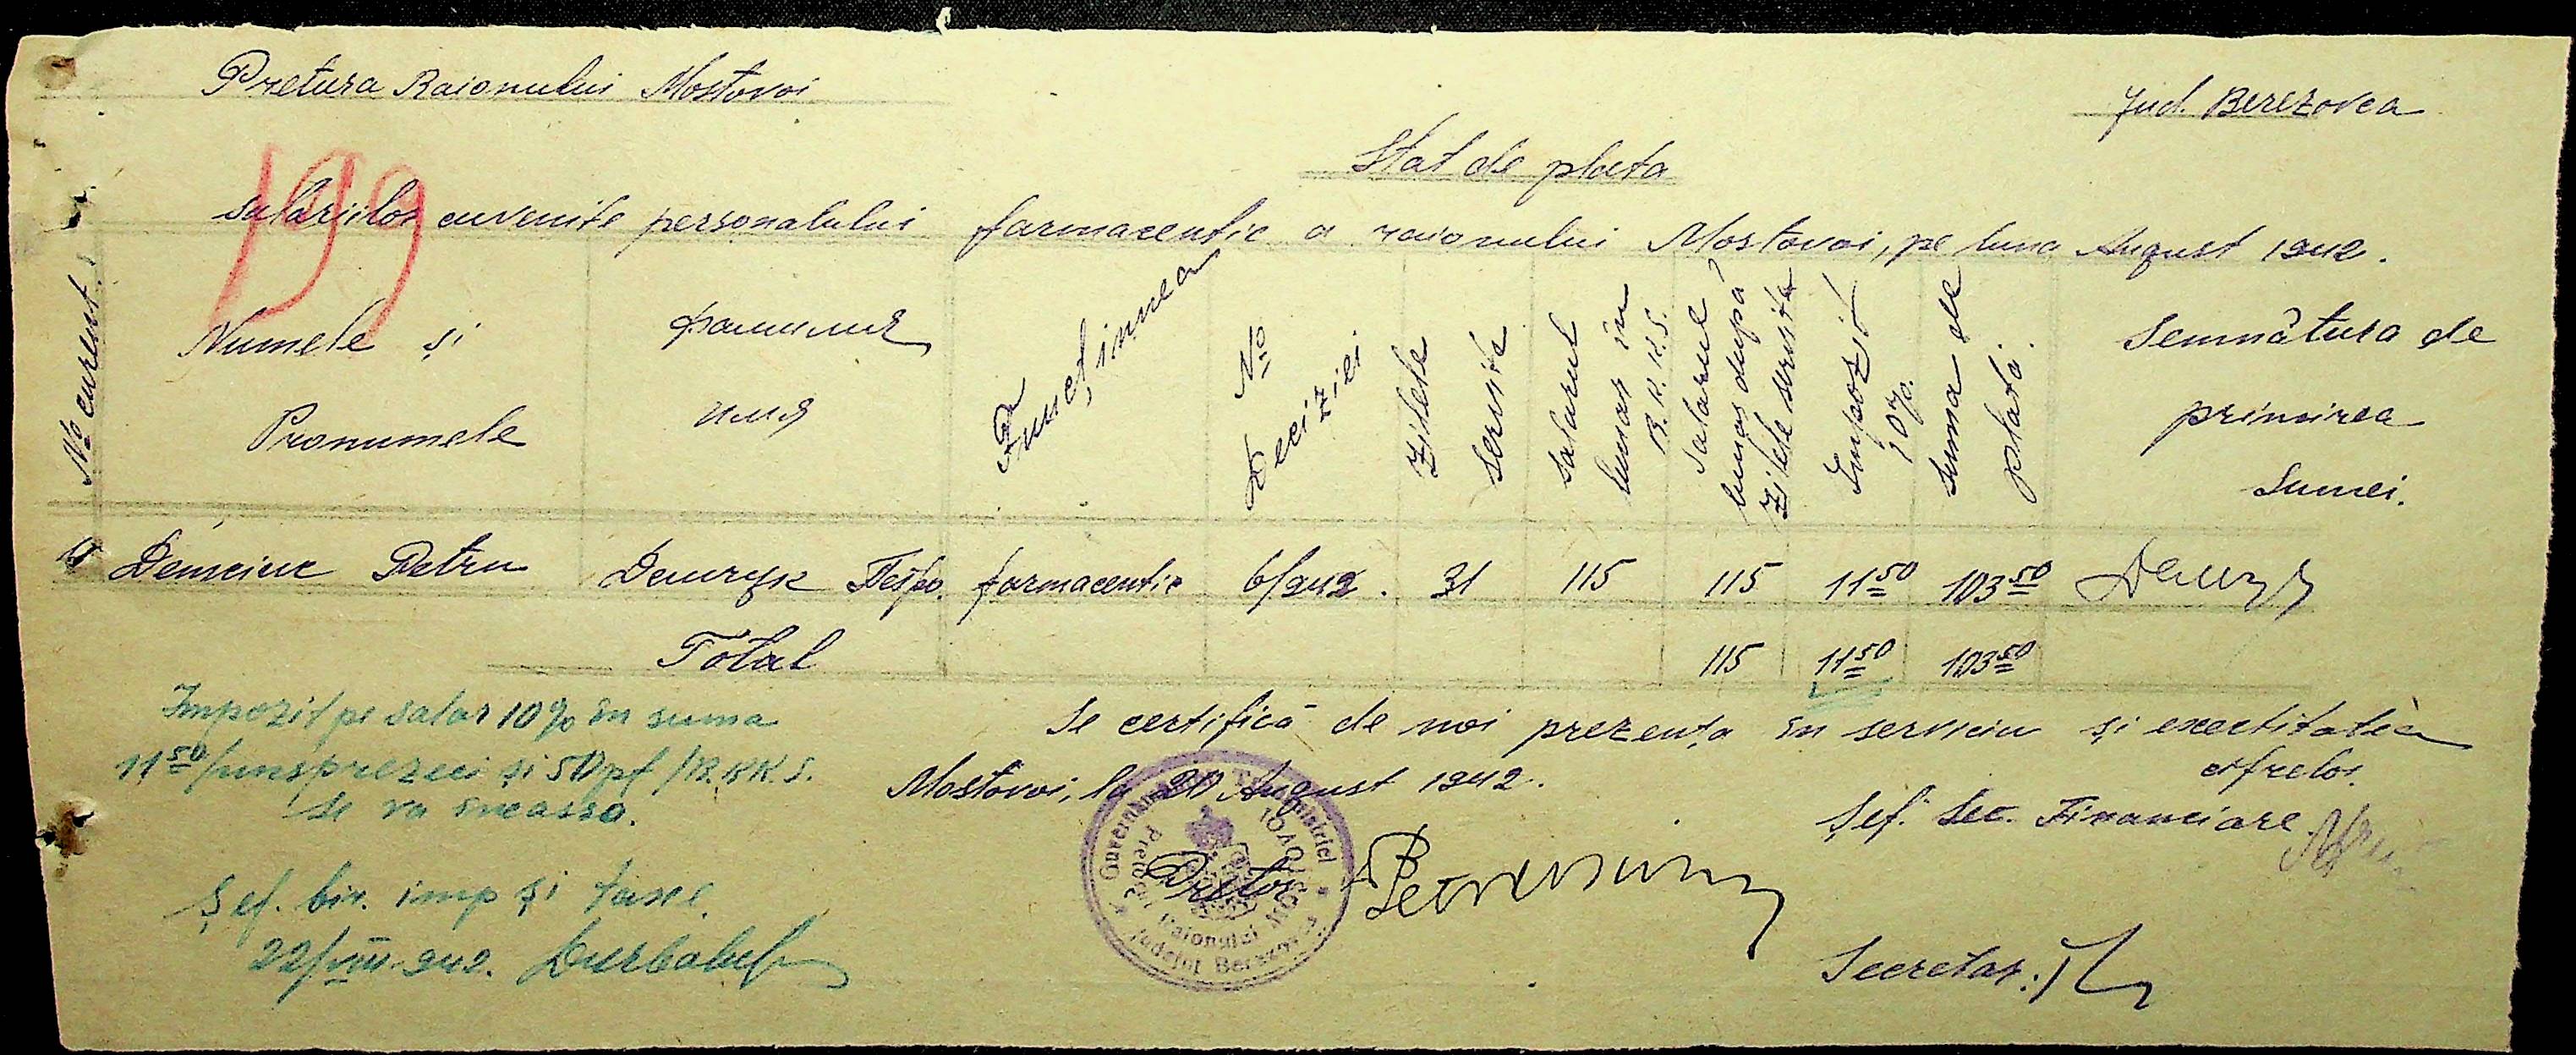 Pretura Raionului Mostovoi
Jud. Berezovca
199
Stat de plata
salariilor cuvenite personalului farmaceutic a raionului Mostovoi, pe luna August 1942.
No curent.
Numele și Pronumele
фамилия имя
Funcțiunea
No Deciziei
Zilele servite
Salarul lunar în R.K.K.S.
Salarul lunar după zilele servite
Impozit 10%.
Suma de plată.
Semnătura de primirea sumei.
1 Demciuc Petru Демчук Петро. farmaceutic 6/942. 31 115 115 11 50 103 50 Демчук
Total 115 11 50 103 50
Impozit pe salar 10% în suma
11 50 /unsprezeci și 50 pf/ R.K.K.S.
se va încassa.
Șef. bir. imp și taxe.
22/VIII-942.
Se certifică de noi prezența în serviciu și exactitatea cifrelor.
Mostovoi, la 20 August 1942.
Pretor
Șef. Sec. Financiare
Secretar:
Guvernământul Transnistriei
Județul Berezovca
Pretura Raionului MOSTOVOI